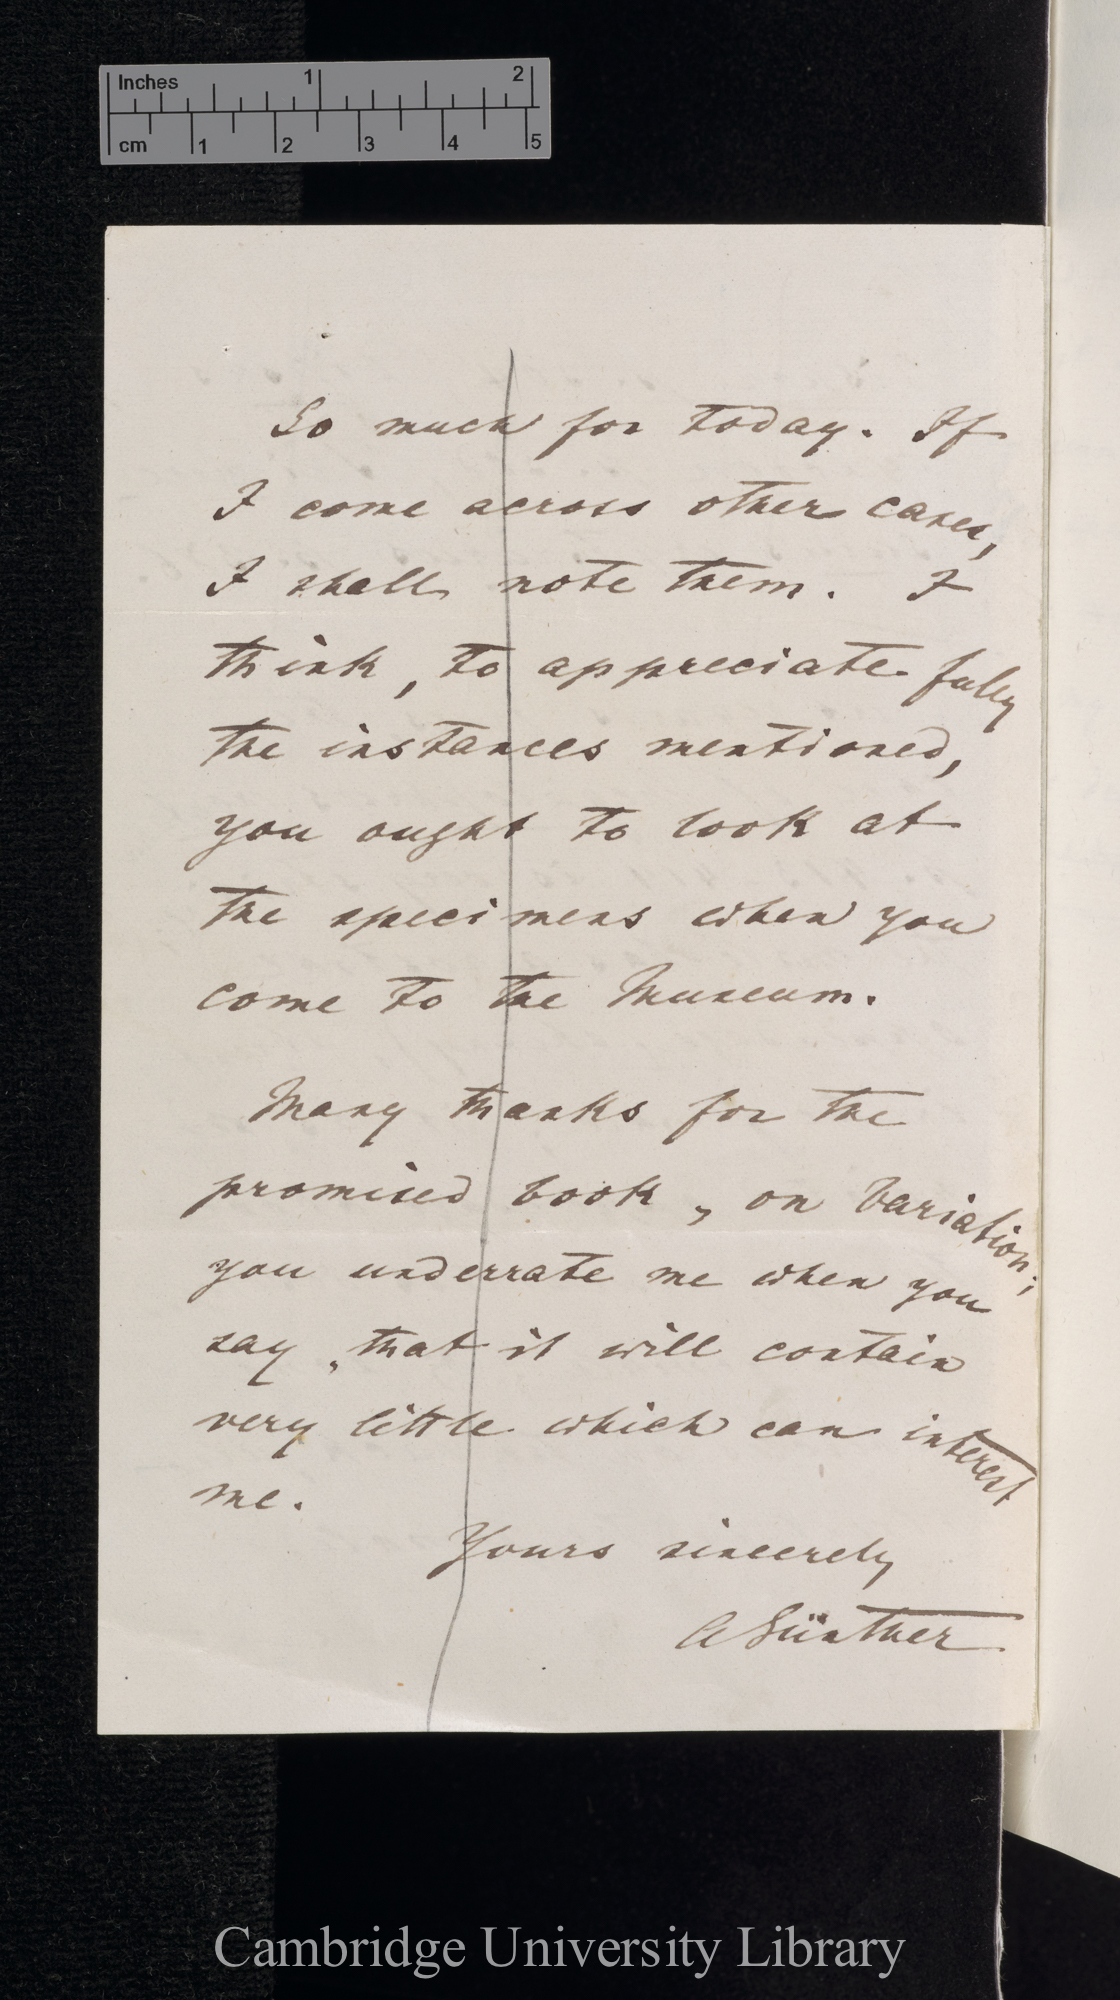 Inches 1 2
cm 1 2 3 4 5
So much for today. If
I come across other cases,
I shall note them. I
think, to appreciate fully
the instances mentioned,
you ought to look at
the specimens when you
come to the Museum.
Many thanks for the
promised book, on Variation;
you underrate me when you
say, that it will contain
very little which can interest
me.
Yours sincerely
A Günther
Cambridge University Library